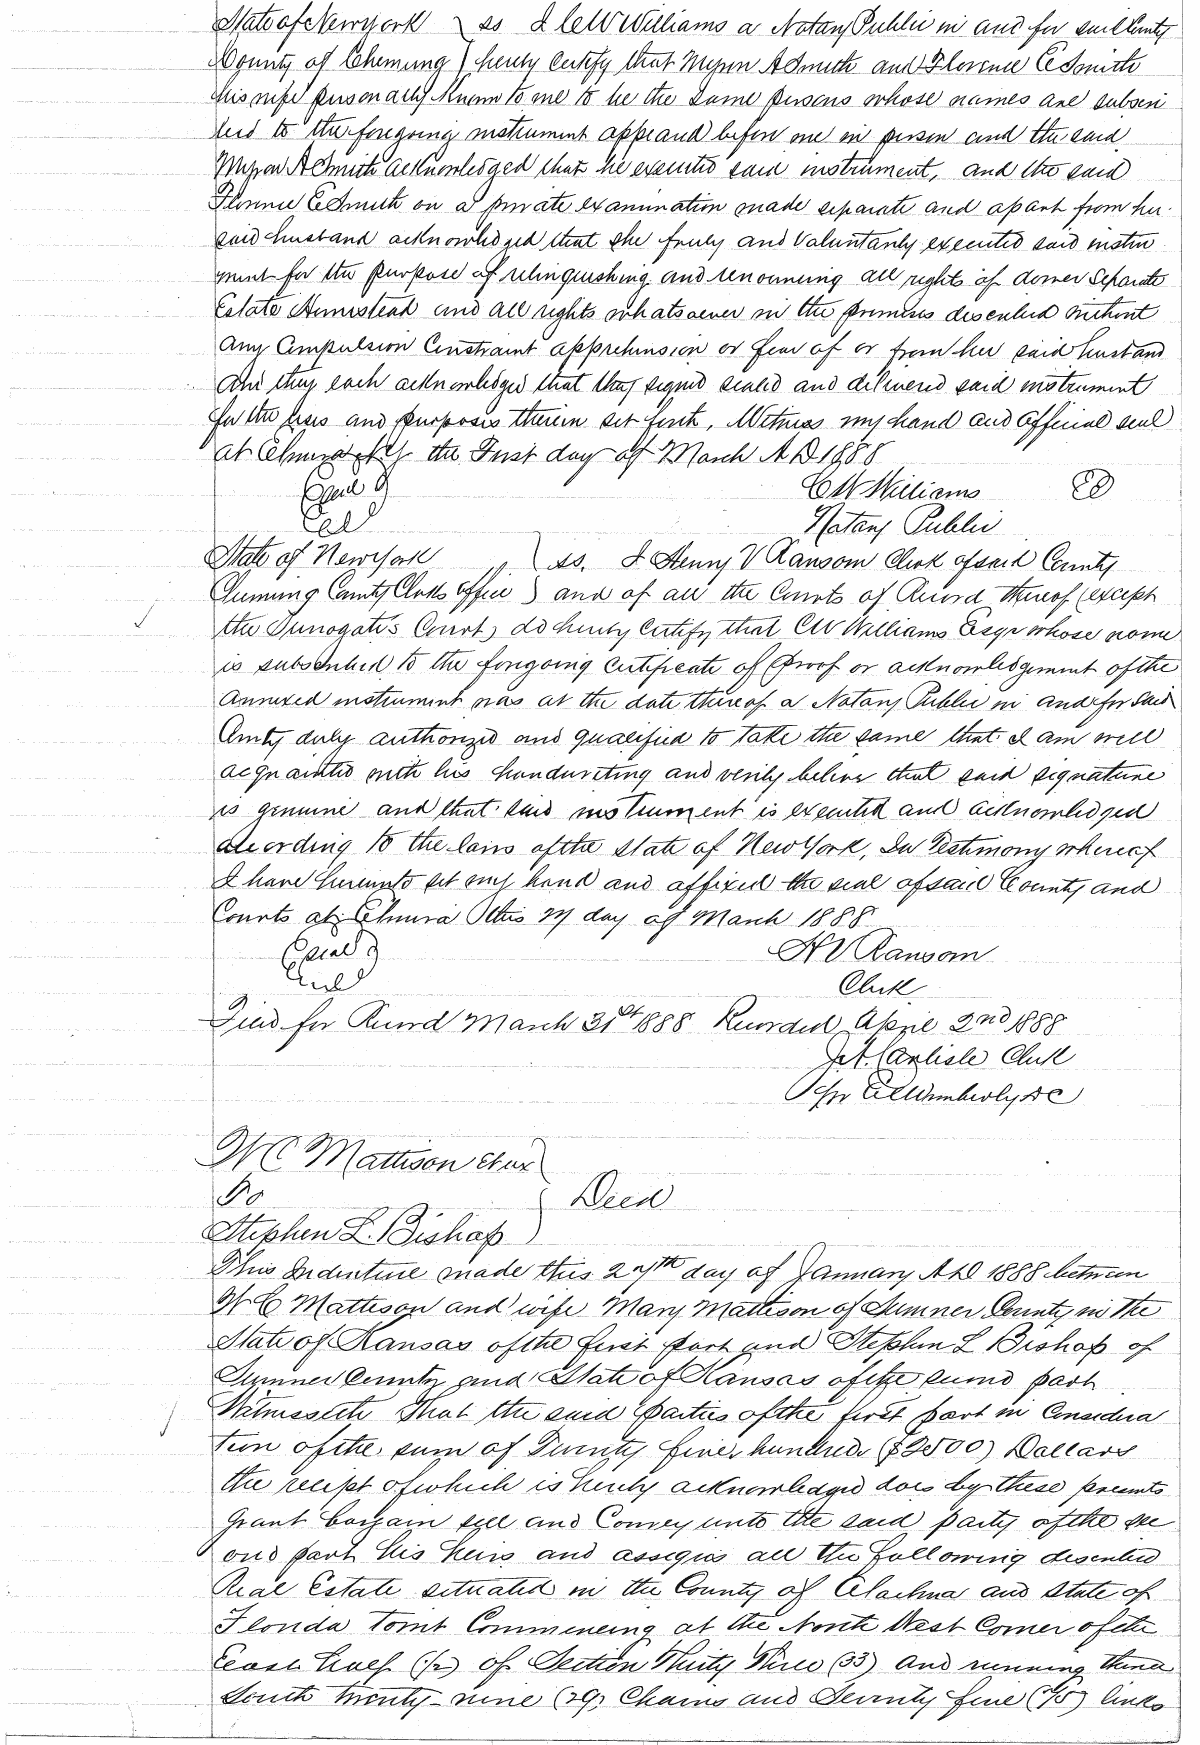 State of New York } ss I C W Williams a Notary Public in and for said County
County of Chemung ) hereby certify that Myron A Smith and Florence E Smith
his wife personally known to me to be the same persons whose names are subscri
bed to the foregoing instrument appeared before me in person and the said
Myron A Smith acknowledged that he executed said instrument, and the said
Florence E Smith on a private examination made separate and apart from her
said husband acknowledged that she freely and voluntarily executed said instru
ment for the purpose of relinquishing and renouncing all rights of dower Separate
Estate Homestead and all rights whatsoever in the premises described without
any Compulsion Constraint apprehension or fear of or from her said husband
And they each acknowledged that they signed sealed and delivered said instrument
for the uses and purposes therein set forth, Witness my hand and official seal
at Elmira N Y the First day of March A D 1888
C W Williams
Notary Public
State of New York } ss. I Henry V Ransom Clerk of said County
Chemung County Clerks Office ) and of all the Courts of Record thereof (except
the Surrogate's Court) do hereby certify that C W Williams Esqr whose name
is subscribed to the foregoing certificate of proof or acknowledgement of the
annexed instrument was at the date thereof a Notary Public in and for said
County duly authorized and qualified to take the same that I am well
acquainted with his handwriting and verily believe that said signature
is genuine and that said instrument is executed and acknowledged
according to the laws of the state of New York, In Testimony whereof
I have hereunto set my hand and affixed the seal of said County and
Courts at Elmira this day of March 1888
H V Ransom
Clerk
Filed for Record March 31st 1888 Recorded April 2nd 1888
J A Carlisle Clerk
Per Wimberly D C
W C Mattison et ux )
To { Deed
Stephen L. Bishop )
This Indenture made this 27th day of January A D 1888 between
W C Mattison and wife Mary Mattison of Sumner County in the
State of Kansas of the first part and Stephen L Bishop of
Sumner County and State of Kansas of the second part
Witnesseth That the said parties of the first part in Considera
tion of the sum of Twenty five hundred ($2500) Dollars
the receipt of which is hereby acknowledged does by these presents
grant bargain sell and Convey unto the said party of the sec
ond part his heirs and assigns all the following described
Real Estate situated in the County of Alachua and State of
Florida towit Commencing at the North West Corner of the
East half (1/2) of Section Thirty Three (33) and running thence
South twenty-nine (29) Chains and Seventy five (75) links